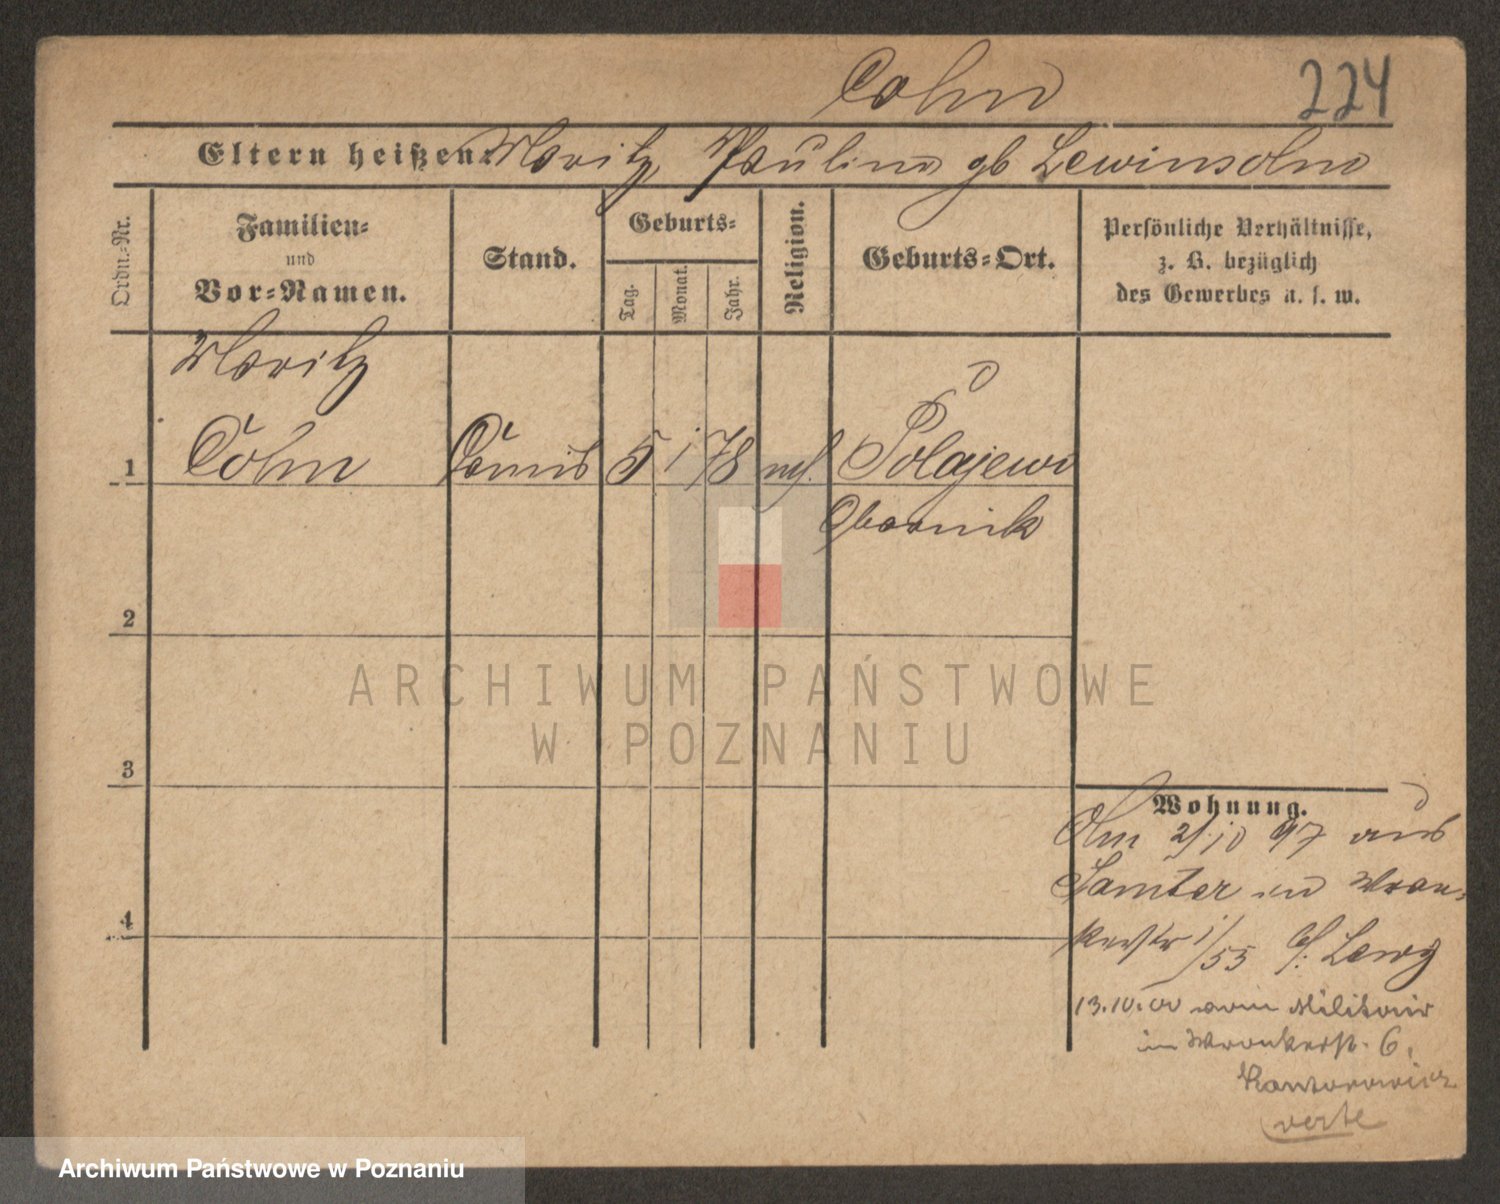 Cohn 224
Eltern heißen: Moritz, Paulina gb Lewinsohn
Ordn.-Nr.
Familien-
und
Vor-Namen.
Stand.
Geburts-
Tag.
Monat.
Jahr.
Religion.
Geburts-Ort.
Persönliche Verhältnisse,
z. B. bezüglich
des Gewerbes u. s. w.
Moritz
1 Cohn 5 1 78 Polajewo
Obornik
2
3
4
ARCHIWUM PAŃSTWOWE
W POZNANIU
Wohnung.
2/10 97 aus
Samter in Wron-
kerstr 1/55 b/: Lewy
13.10.00 vom Militair
in Wronkerstr. 6.
Kantorowicz
verte
Archiwum Państwowe w Poznaniu